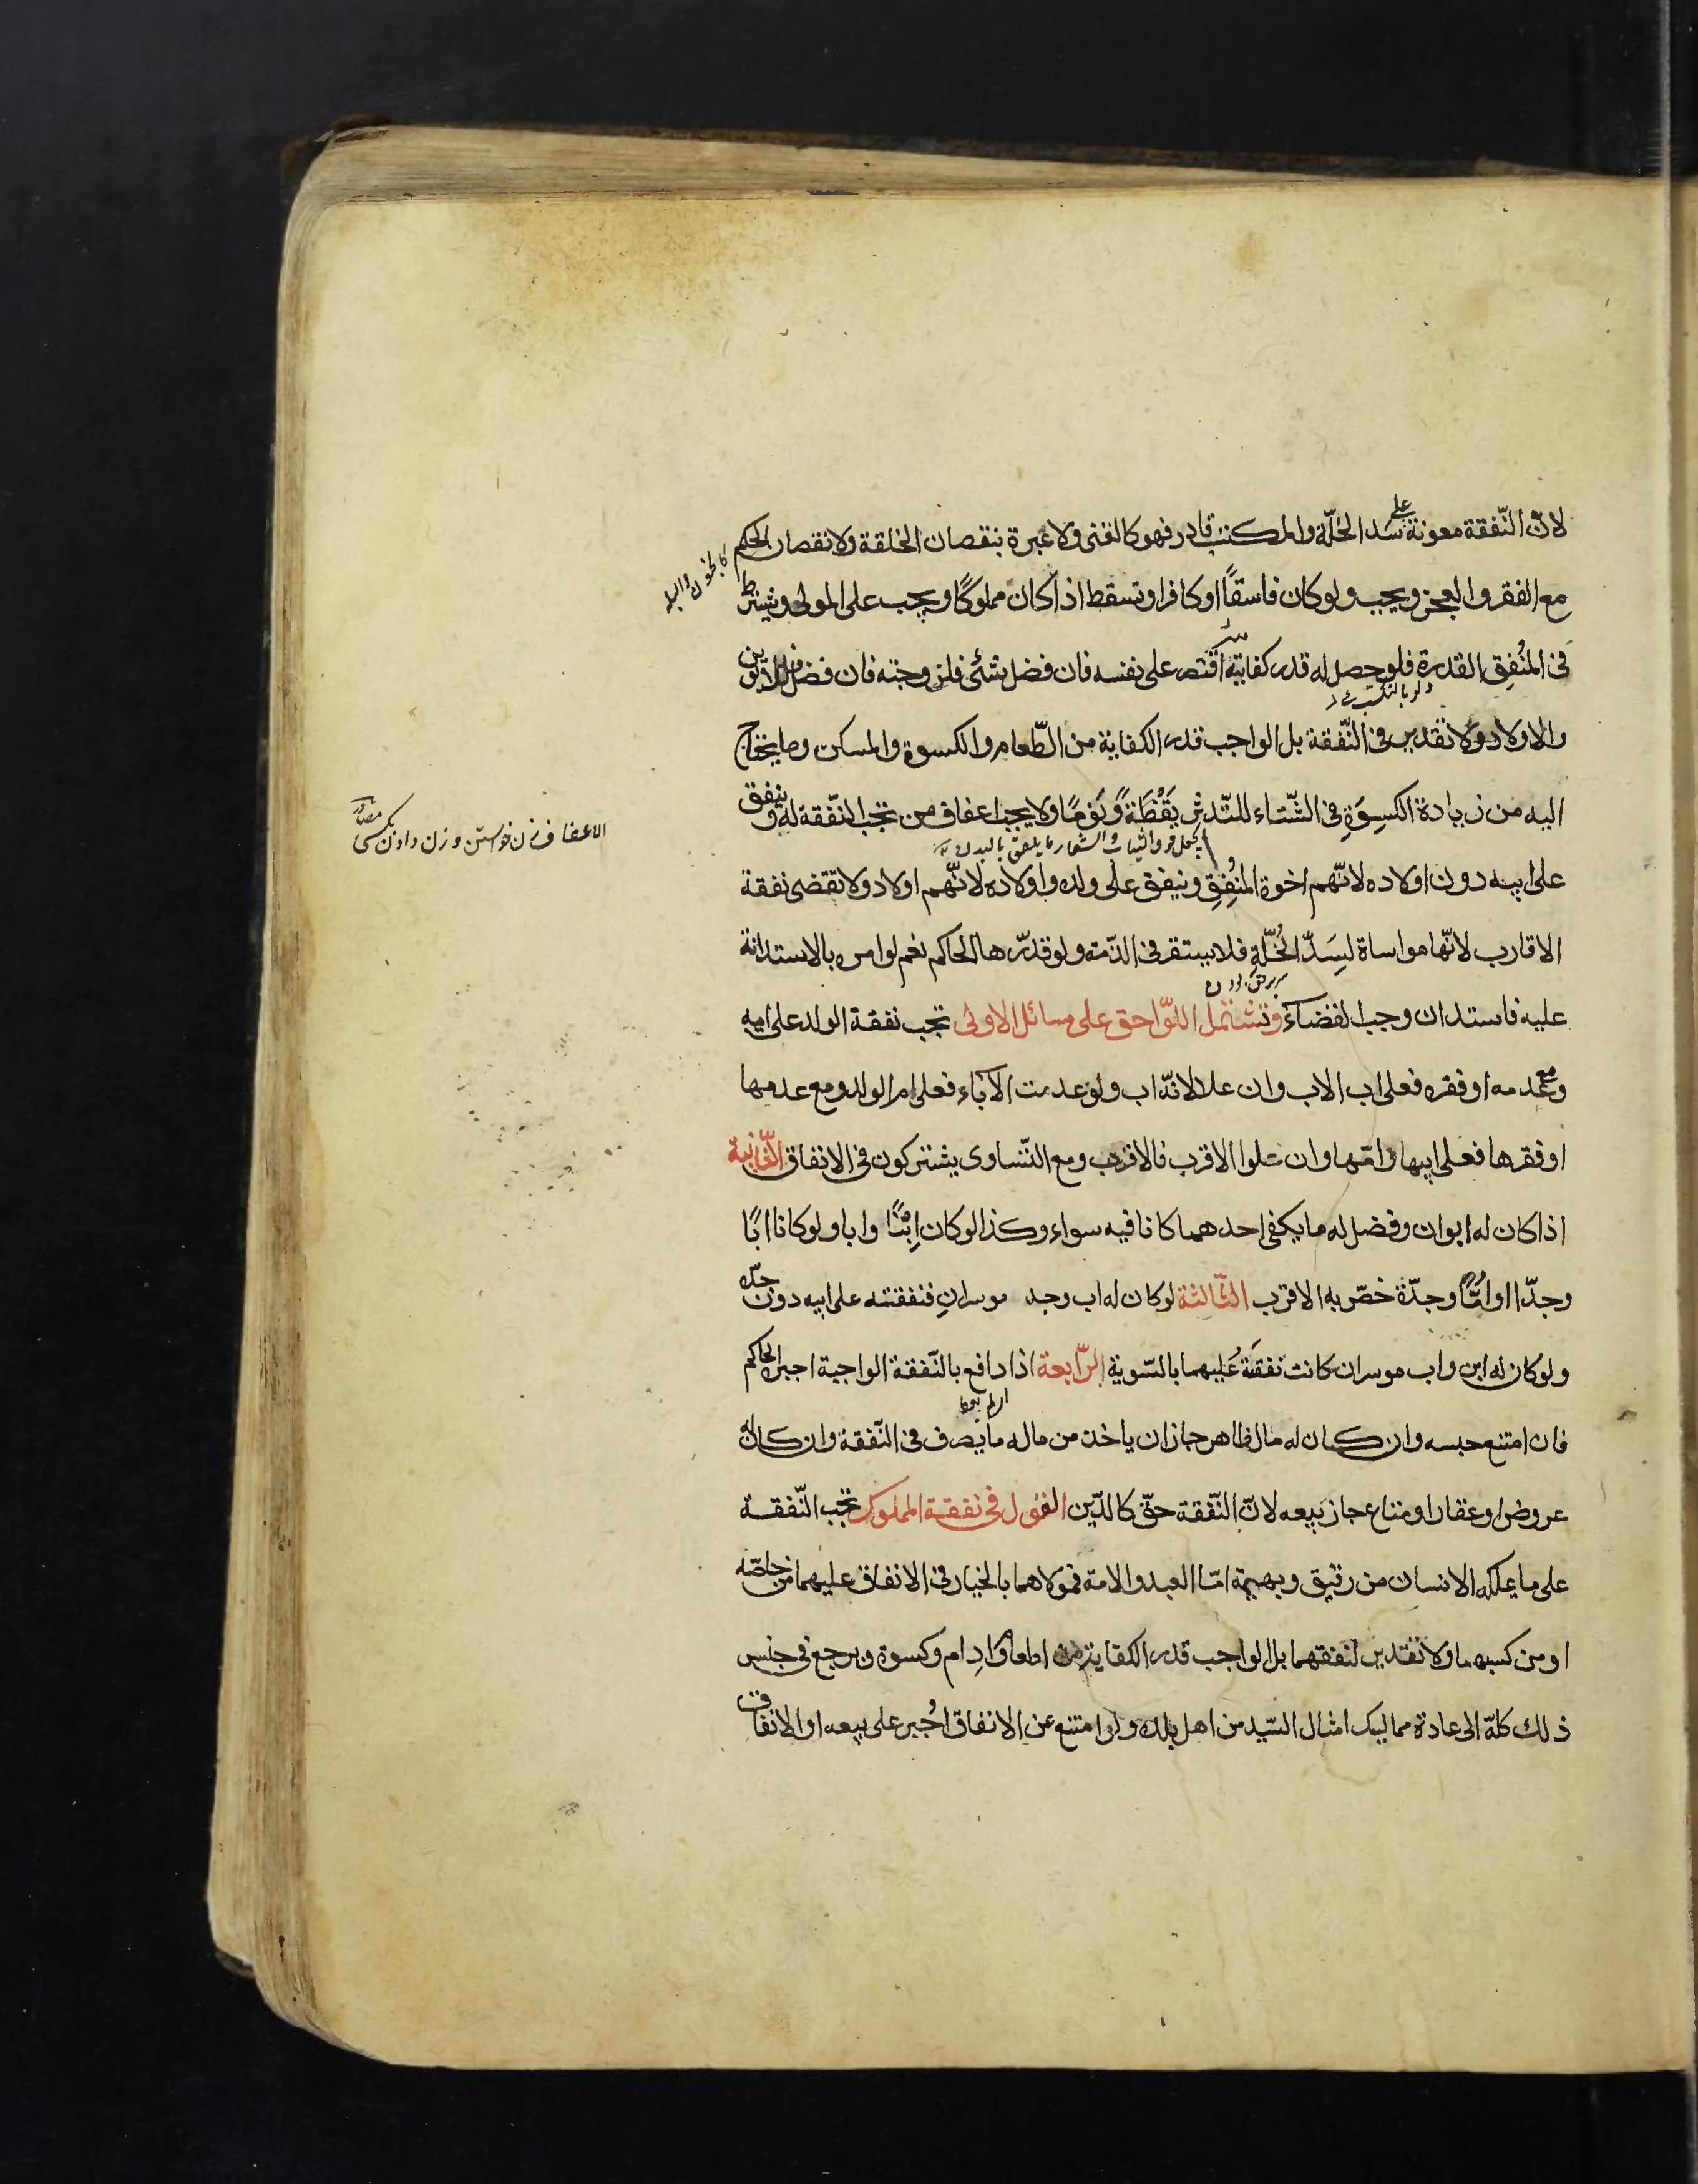 لانّ النّفقة معونة على سَدّ الخلّة والمكتسب قادر فهو كالغنى ولا عبرة بنقصان الخلقة ولا نقصان الحكم
كالجنون والبله
مع الفقر والعجز ويجب ولو كان فاسقًا او كافرا وتسقط اذا كان مملوكًا ويجب على المولى ويشترط
فى المُنفِق القدرة فلو حصل له قدر كفايته اقتصر على نفسه فان فضل شئ فلزوجته فان فضل فللابوين
ولو بالتكسب
والاولاد ولا تقدير فى النّفقة بل الواجب قدر الكفاية من الطّعام والكسوة والمسكن وما يحتاج
اليه من زيادة الكِسوَةِ فى الشّتاء للتّدثر يَقْظَةً وَنَومًا ولا يجب اعفاف من تجب النّفقة له وينفق
الاعفاف زن خواستن و زن دادن بكسى مصادر
يجعل فوق الثياب والشعار ما يلصق بالبدن
على ابيه دون اولاده لانّهم اخوة المُنفِقِ وينفق على ولده واولاده لانّهم اولاد ولا تقضى نفقة
الاقارب لانّها مواساة لسَدّ الخُلّةِ فلا يستقر فى الذّمة ولو قدّرها الحاكم نعم لو امره بالاستدانة
عليه فاستدان وجب القضاءُ وتشتمل اللوّاحق على مسائل الاولى تجب نفقة الولد على ابيه
ومع عدمه او فقره فعلى اب الاب وان علا لانّه اب ولو عدمت الآباء فعلى ام الولد ومع عدمها
او فقرها فعلى ابيها وامّها وان علوا الاقرب فالاقرب ومع التّساوى يشتركون فى الانفاق الثّانية
اذا كان له ابوان وفضل له ما يكفى احدهما كانا فيه سواء وكذا لو كان اِبْنًا وابا ولو كانا ابًا
وجدّا او امًّا وجدّة خصّ به الاقرب الثّالثة لو كان له اب وجد موسرانِ فنفقته على ابيه دون جدّه
ولو كان له ابن واب موسران كانت نفقَتهُ عَليهما بالسّوية الرّابعة اذا دافع بالنّفقة الواجبة اجبره الحاكم
فان امتنع حبسه وان كان له مال ظاهر جاز ان ياخذ من ماله ما يصرف فى النّفقة وان كان له
عروض او عقار او متاع جاز بَيعه لانّ النّفقة حقّ كالدّين القول فى نفقة المملوك تجب النّفقة
على ما يملكه الانسان من رقيق وبهيمة امّا العبد والامة فمولاهما بالخيار فى الانفاق عليهما من خاصّه
او من كسبهما ولا تقدير لنفقتهما بل الواجب قدر الكفاية من اطعام وادِام وكسوة ويرجع فى جنس
ذلك كلّه الى عادة مماليك امثال السّيد من اهل بلده ولو امتنع عن الانفاق اُجبر على بيعه او الانفاق